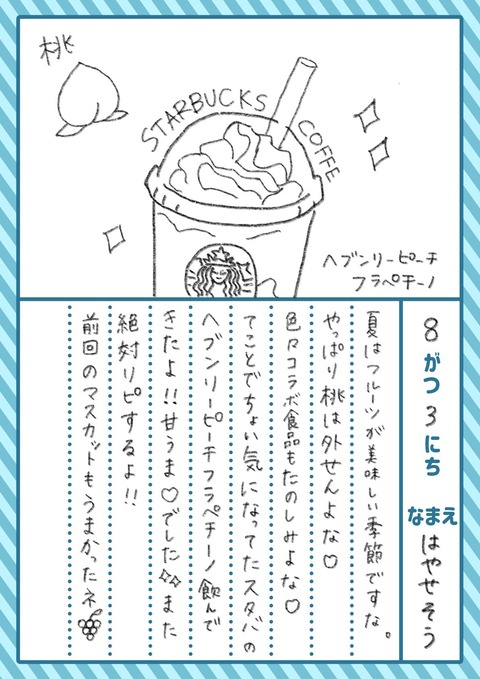 桃
STARBUCKS COFFE
ヘブンリーピーチ
フラペチーノ
8がつ3にち なまえ はやせそう
夏はフルーツが美味しい季節ですな。
やっぱり桃は外せんよな♡
色々コラボ食品もたのしみよな♡
てことでちょい気になってたスタバの
ヘブンリーピーチフラペチーノ飲んで
きたよ!!甘うま♡でした✨また
絶対リピするよ!!
前回のマスカットもうまかったネ🍇